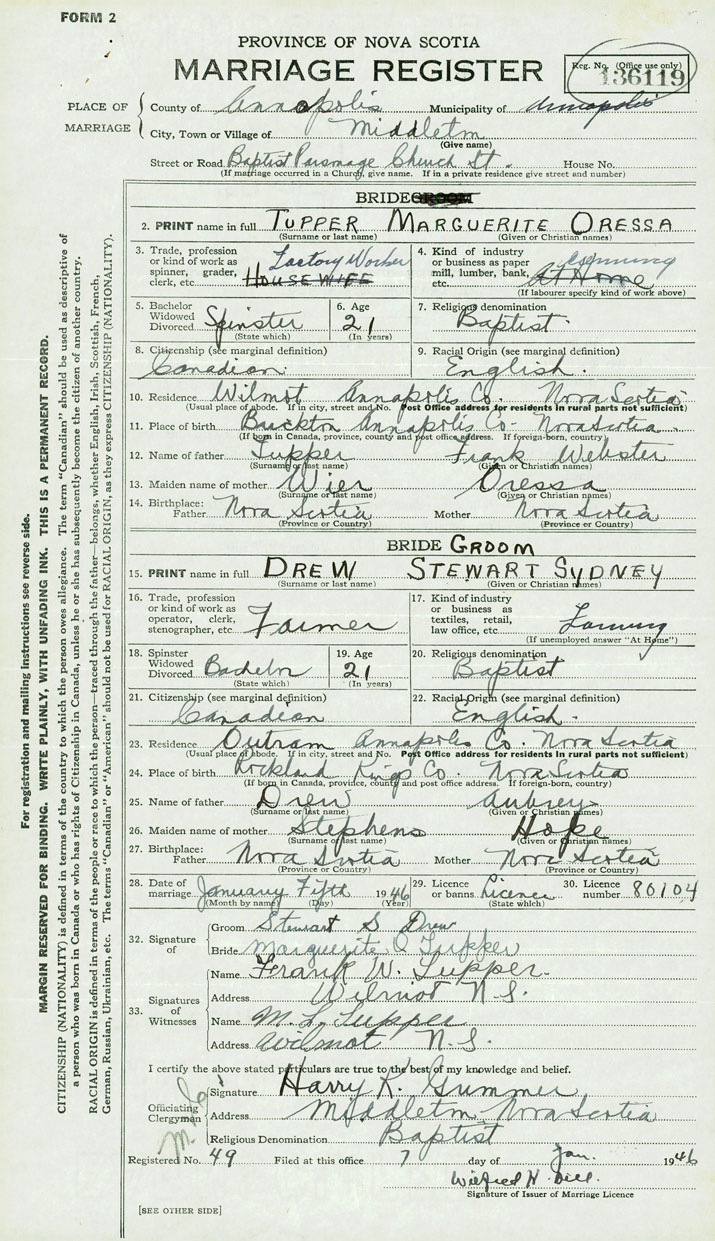 FORM 2
PROVINCE OF NOVA SCOTIA
MARRIAGE REGISTER
Reg. No. (Office use only)
136119
PLACE OF MARRIAGE
County of Annapolis Municipality of Annapolis
City, Town or Village of Middleton
(Give name)
Street or Road Baptist Parsonage Church St. House No.
(If marriage occurred in a Church, give name. If in a private residence give street and number)
BRIDEGROOM
2. PRINT name in full TUPPER MARGUERITE ORESSA
(Surname or last name) (Given or Christian names)
3. Trade, profession or kind of work as spinner, grader, clerk, etc. Factory Worker HOUSEWIFE
4. Kind of industry or business as paper mill, lumber, bank, etc. canning At Home
(If labourer specify kind of work above)
5. Bachelor Widowed Divorced Spinster
(State which)
6. Age 21
(In years)
7. Religious denomination
Baptist.
8. Citizenship (see marginal definition)
Canadian
9. Racial Origin (see marginal definition)
English.
10. Residence Wilmot Annapolis Co. Nova Scotia
(Usual place of abode. If in city, street and No. Post Office address for residents in rural parts not sufficient)
11. Place of birth Annapolis Co. Nova Scotia.
(If born in Canada, province, county and post office address. If foreign-born, country)
12. Name of father Tupper Frank Webster
(Surname or last name) (Given or Christian names)
13. Maiden name of mother Wier Oressa
(Surname or last name) (Given or Christian names)
14. Birthplace: Father Nova Scotia Mother Nova Scotia
(Province or Country) (Province or Country)
BRIDE GROOM
15. PRINT name in full DREW STEWART SYDNEY
(Surname or last name) (Given or Christian names)
16. Trade, profession or kind of work as operator, clerk, stenographer, etc. Farmer
17. Kind of industry or business as textiles, retail, law office, etc. Farming
(If unemployed answer "At Home")
18. Spinster Widowed Divorced Bachelor
(State which)
19. Age 21
(In years)
20. Religious denomination
Baptist
21. Citizenship (see marginal definition)
Canadian
22. Racial Origin (see marginal definition)
English.
23. Residence Outram Annapolis Co. Nova Scotia
(Usual place of abode. If in city, street and No. Post Office address for residents in rural parts not sufficient)
24. Place of birth Rockland Kings Co. Nova Scotia
(If born in Canada, province, county and post office address. If foreign-born, country)
25. Name of father Drew Aubrey
(Surname or last name) (Given or Christian names)
26. Maiden name of mother Stephens Hope
(Surname or last name) (Given or Christian names)
27. Birthplace: Father Nova Scotia Mother Nova Scotia
(Province or Country) (Province or Country)
28. Date of marriage January Fifth 1946
(Month by name) (Day) (Year)
29. Licence or banns Licence
(State which)
30. Licence number 80104
32. Signature of
Groom Stewart S Drew
Bride Marguerite O Tupper
33. Signatures of Witnesses
Name Frank W. Tupper.
Address Wilmot N.S.
Name M. L. Tupper
Address Wilmot N.S.
I certify the above stated particulars are true to the best of my knowledge and belief.
Officiating Clergyman
Signature Harry K. Gummer
Address Middleton Nova Scotia
Religious Denomination Baptist
Registered No. 49 Filed at this office 7 day of Jan. 1946
Wilfred H.
Signature of Issuer of Marriage Licence
[SEE OTHER SIDE]
For registration and mailing instructions see reverse side.
MARGIN RESERVED FOR BINDING. WRITE PLAINLY, WITH UNFADING INK. THIS IS A PERMANENT RECORD.
CITIZENSHIP (NATIONALITY) is defined in terms of the country to which the person owes allegiance. The term "Canadian" should be used as descriptive of
a person who was born in Canada or who has rights of Citizenship in Canada, unless he or she has subsequently become the citizen of another country.
RACIAL ORIGIN is defined in terms of the people or race to which the person—traced through the father—belongs, whether English, Irish, Scottish, French,
German, Russian, Ukrainian, etc. The terms "Canadian" or "American" should not be used for RACIAL ORIGIN, as they express CITIZENSHIP (NATIONALITY).